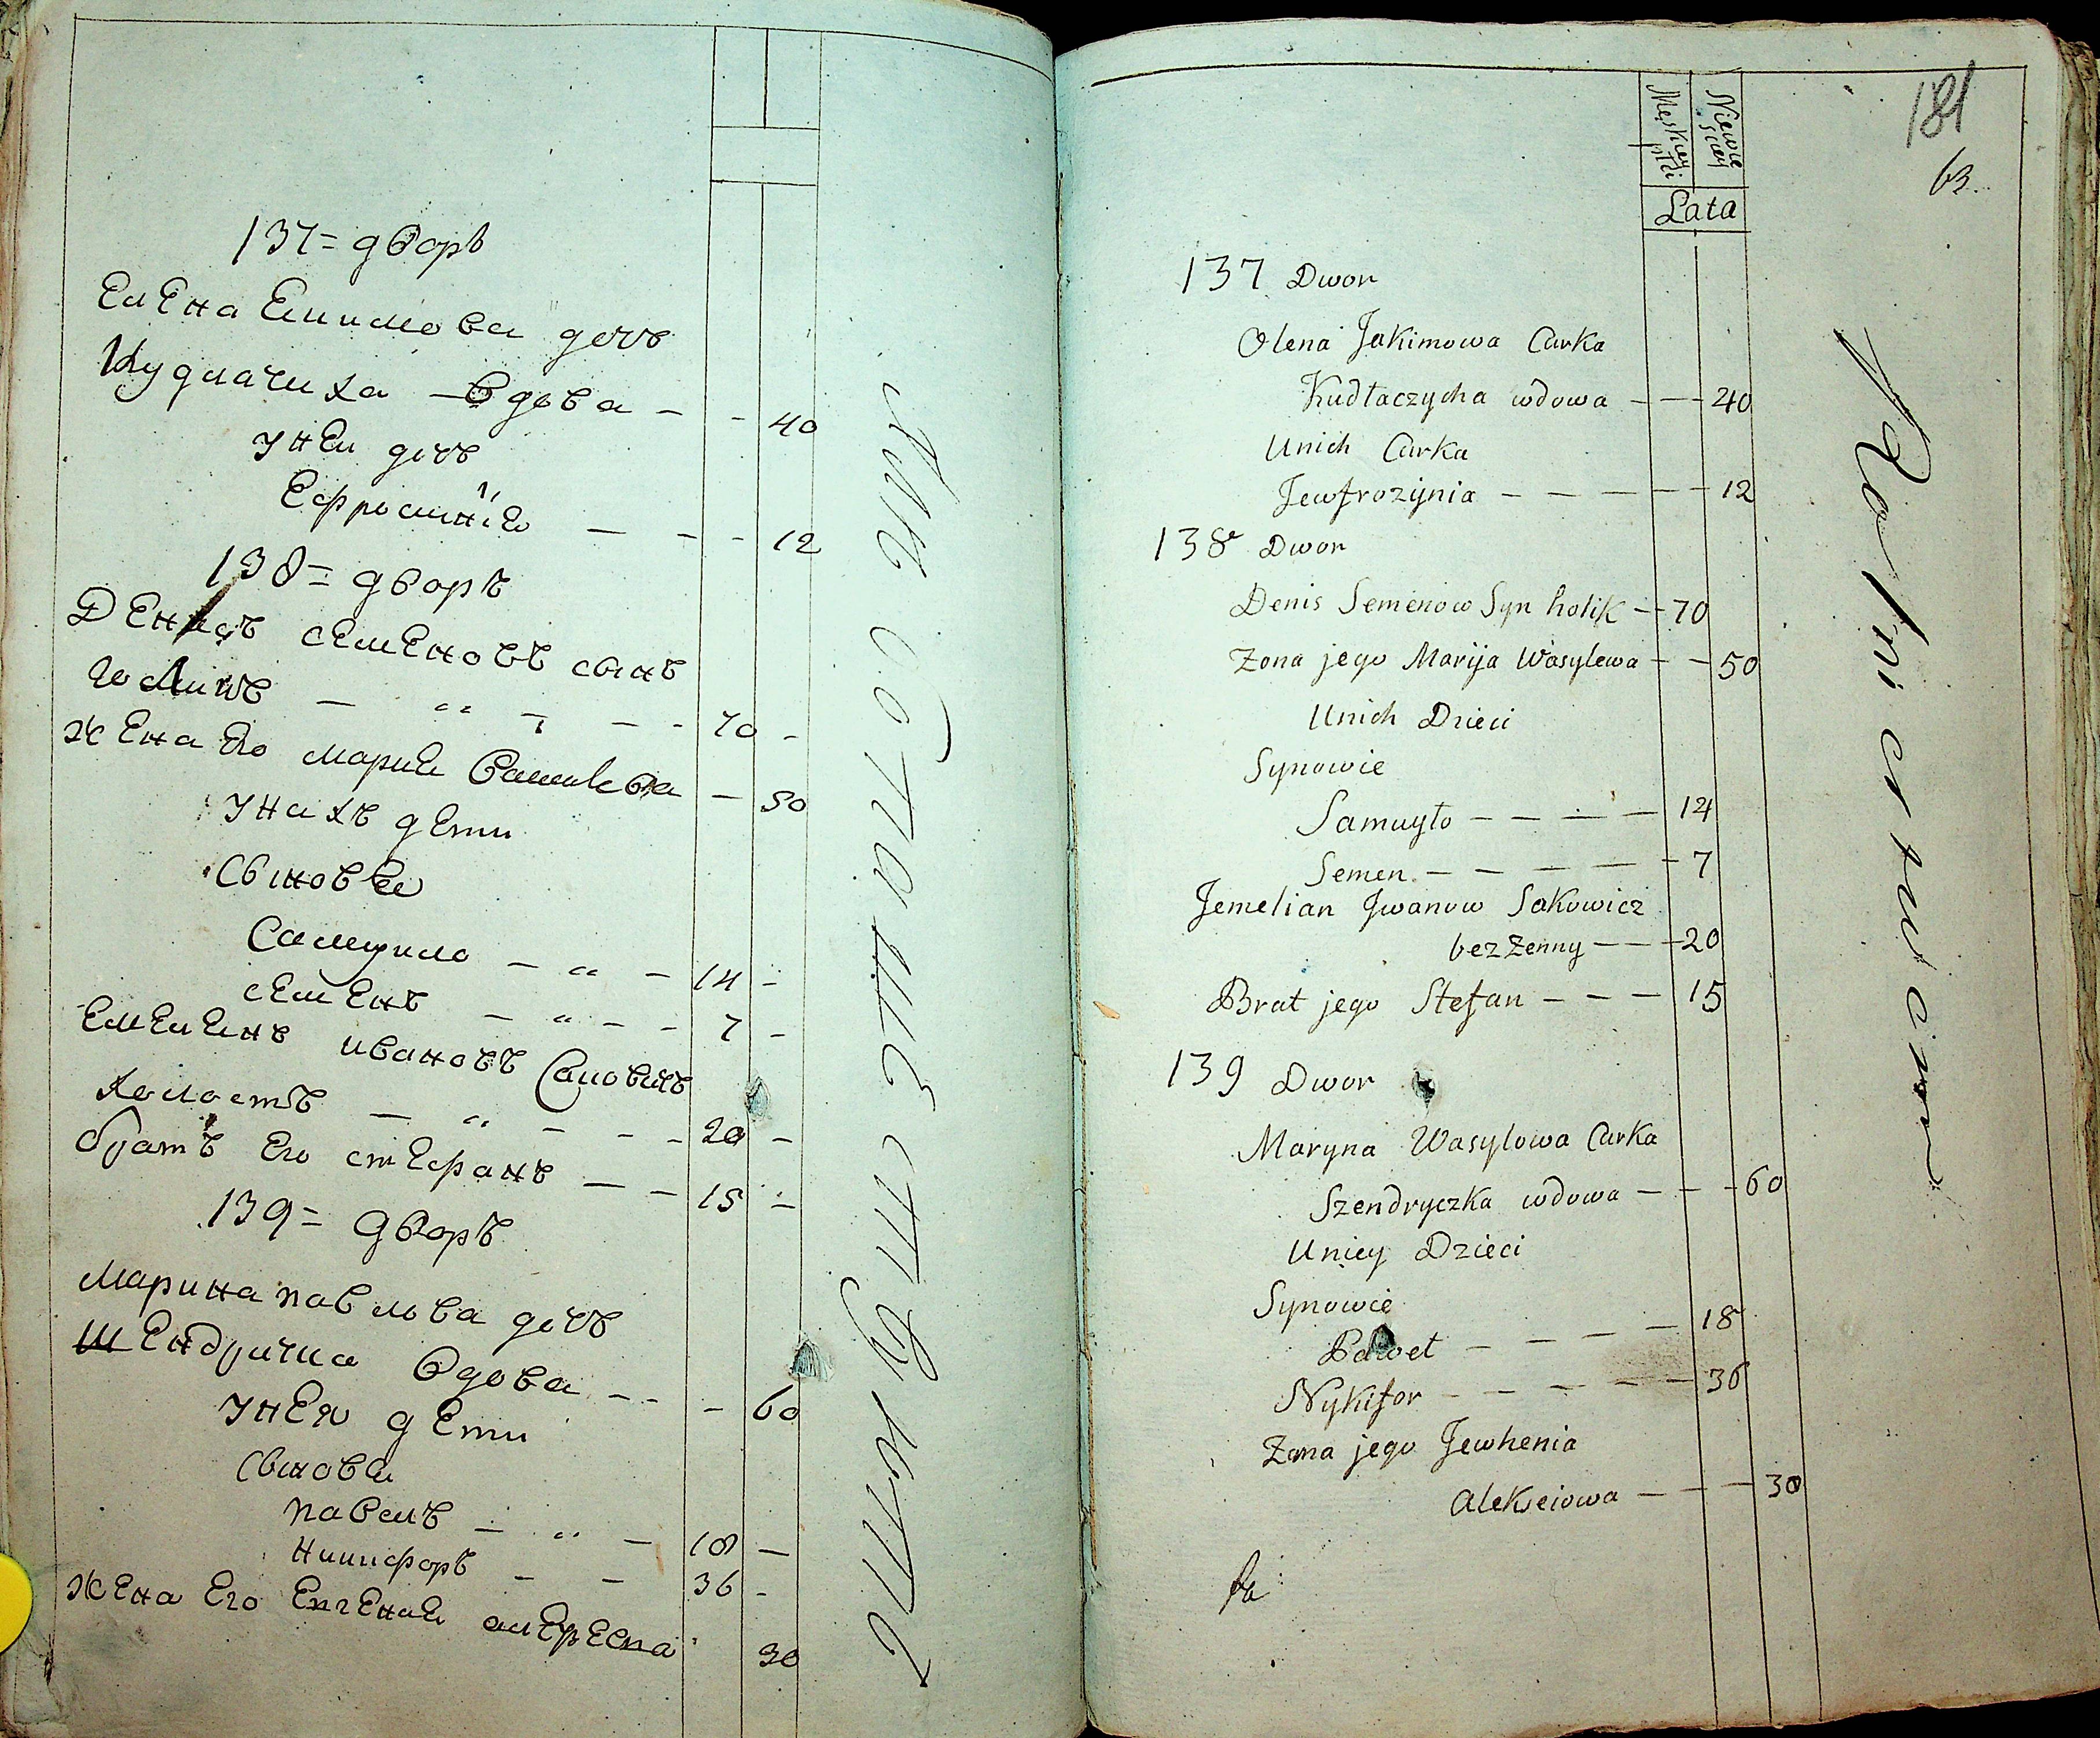 137 = дворъ
Елена Екимова дочь
Кудлачиха вдова - - 40
У неи дочь
Ефросинія - - - 12
138 = дворъ
Денисъ Семеновъ сынъ
голикъ - - - - 70 -
жена его Мария Василева - 50
У нихъ дети
Сыновья
Самуило - - 14 -
Семенъ - - - 7 -
Емелиянъ Ивановъ Саковичъ
холостъ - - - - 20 -
братъ его Стефанъ - - 15 -
139 = дворъ
Марина Павлова дочь
Шендричка вдова - - - 60
У нея дети
Сыновья
Павелъ - - 18 -
Никифоръ - - 36 -
Жена его Евгения 30
181
63.
Męskiey płci
Niewieściey
Lata
137 Dwor
Olena Jakimowa Curka
Kudłaczycha wdowa - - - 40
Unich Curka
Jewfrozynia - - - - - 12
138 Dwor
Denis Semenow Syn holik - - 70
Zona jego Marija Wasylewa - - 50
Unich Dzieci
Synowie
Samuyło - - - - 14
Semen - - - - - 7
Jemelian Jwanow Sakowicz
bezżenny - - - 20
Brat jego Stefan - - - 15
139 Dwor
Maryna Wasylowa Curka
Szendryczka wdowa - - - 60
Uniey Dzieci
Synowie
Paweł - - - - 18
Nykifor - - - - - 36
Zona jego Jewhenia
Alekseiowa - - - 30
Rolnictwem